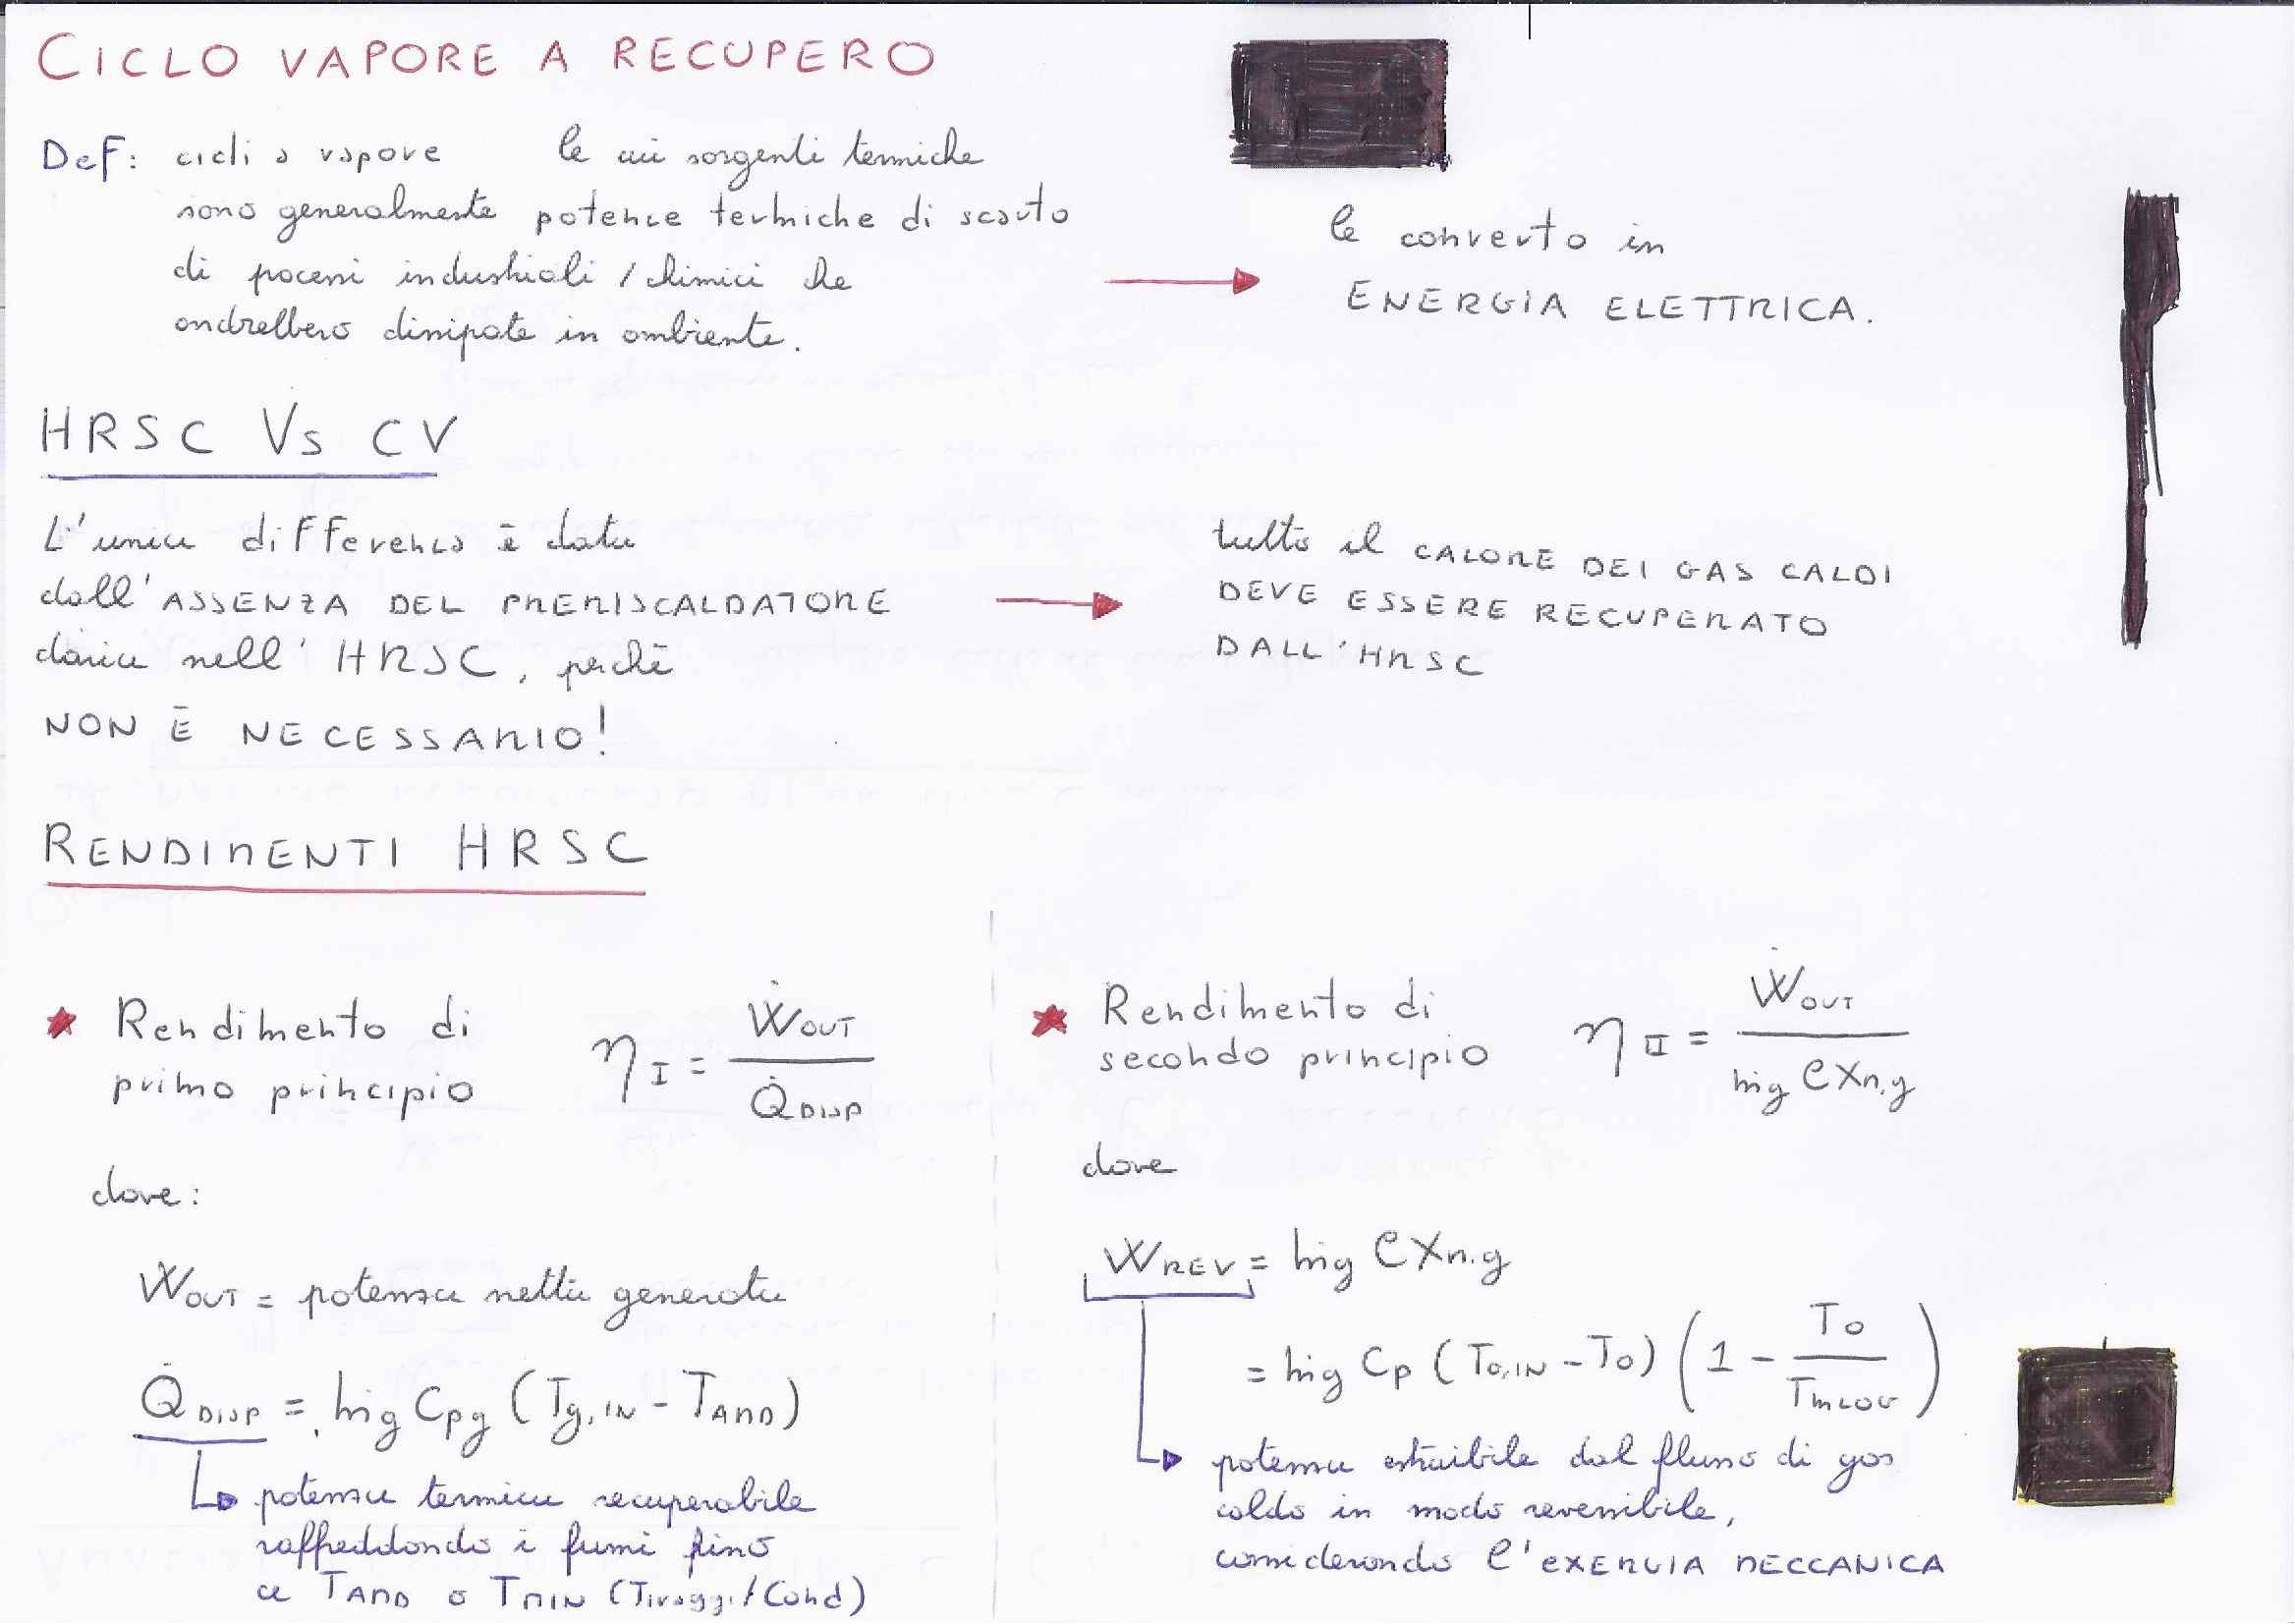 CICLO VAPORE A RECUPERO
Def: cicli a vapore le cui sorgenti termiche
sono generalmente potenze termiche di scarto
di processi industriali / chimici che
andrebbero dissipate in ambiente.
le converto in
ENERGIA ELETTRICA.
HRSC Vs CV
L'unica differenza è data
dall'ASSENZA DEL PRERISCALDATORE
d'aria nell'HRSC, perchè
NON È NECESSARIO!
tutto il CALORE DEI GAS CALDI
DEVE ESSERE RECUPERATO
DALL'HRSC
RENDIMENTI HRSC
Rendimento di
primo principio
η_I = Ẇ_OUT / Q̇_DISP
dove:
Ẇ_OUT = potenza netta generata
Q̇_DISP = ṁg Cpg (Tg,IN - T_AMB)
potenza termica recuperabile
raffreddando i fumi fino
a T_AMB o T_MIN (Tiraggi/Cond)
Rendimento di
secondo principio
η_II = Ẇ_OUT / ṁg exm,g
dove
Ẇ_REV = ṁg exm,g
= ṁg Cp (TG,IN - T0) (1 - T0 / TmLOG)
potenza estraibile dal flusso di gas
caldo in modo reversibile,
considerando l'EXERGIA MECCANICA